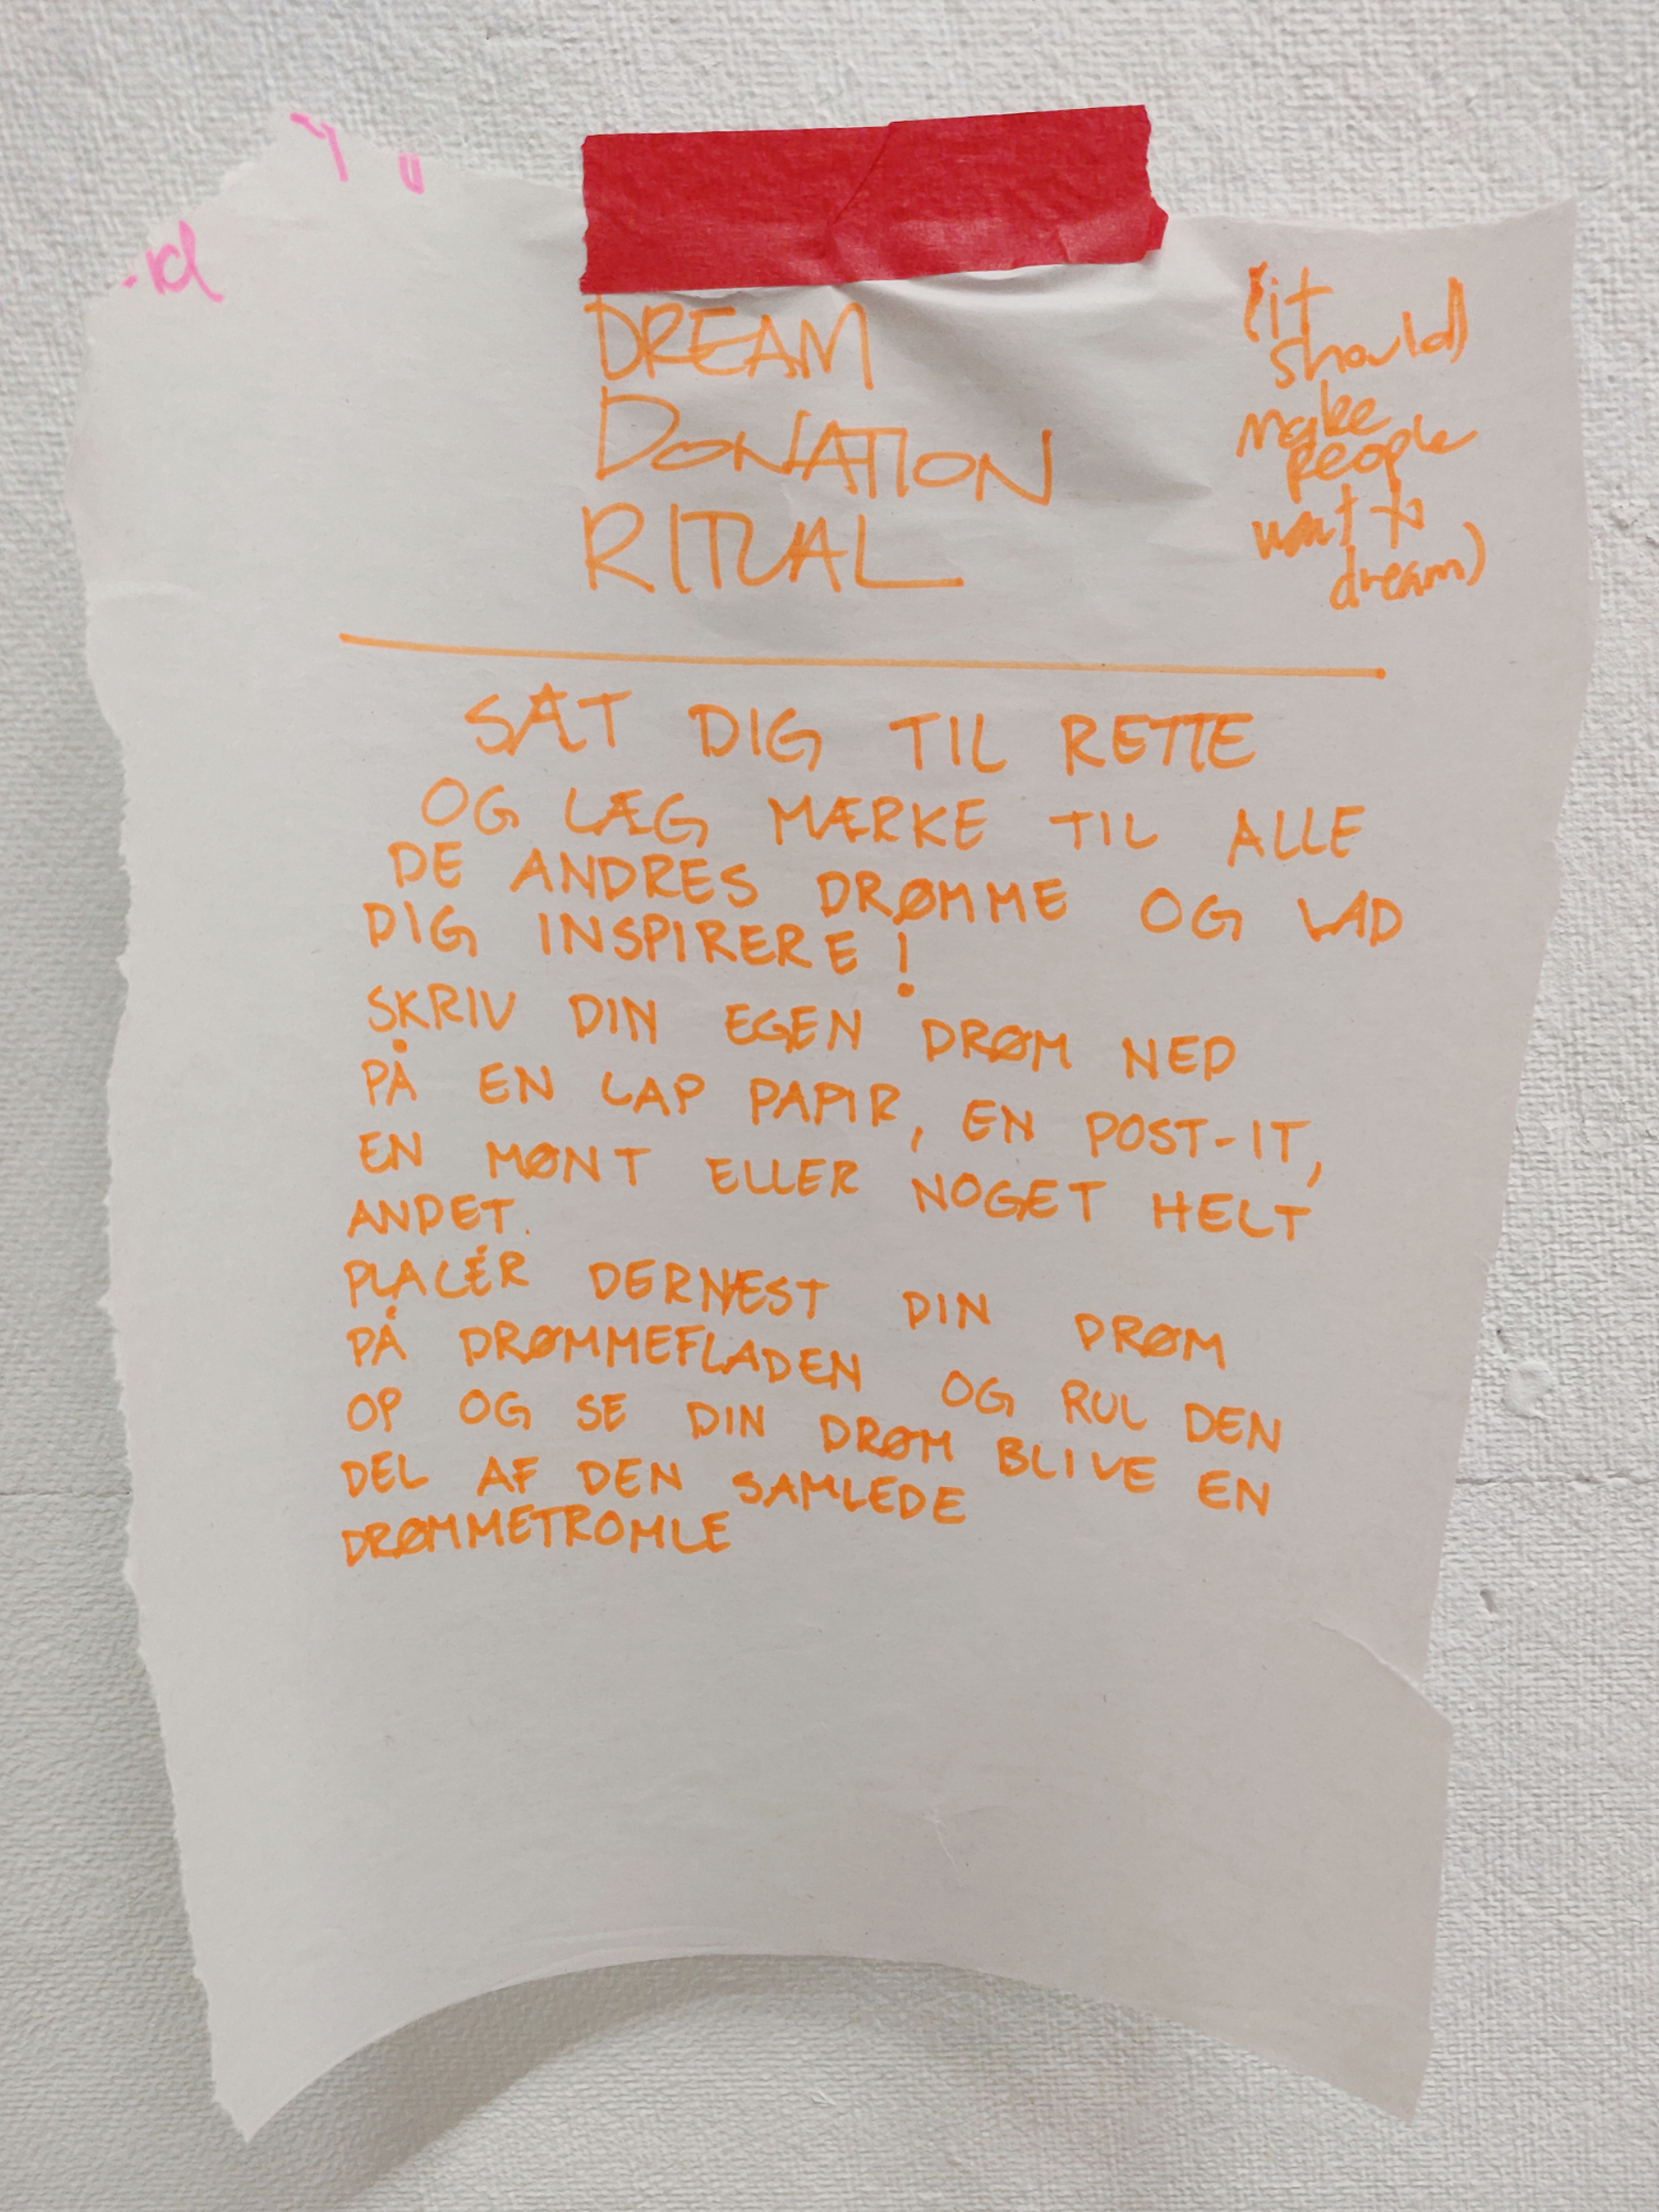 DREAM
DONATION
RITUAL
(it
should)
make
people
want to
dream)
SÆT DIG TIL RETTE
OG LÆG MÆRKE TIL ALLE
DE ANDRES DRØMME OG LAD
DIG INSPIRERE!
SKRIV DIN EGEN DRØM NED
PÅ EN LAP PAPIR, EN POST-IT,
EN MØNT ELLER NOGET HELT
ANDET.
PLACÉR DERNÆST DIN DRØM
PÅ DRØMMEFLADEN OG RUL DEN
OP OG SE DIN DRØM BLIVE EN
DEL AF DEN SAMLEDE
DRØMMETROMLE